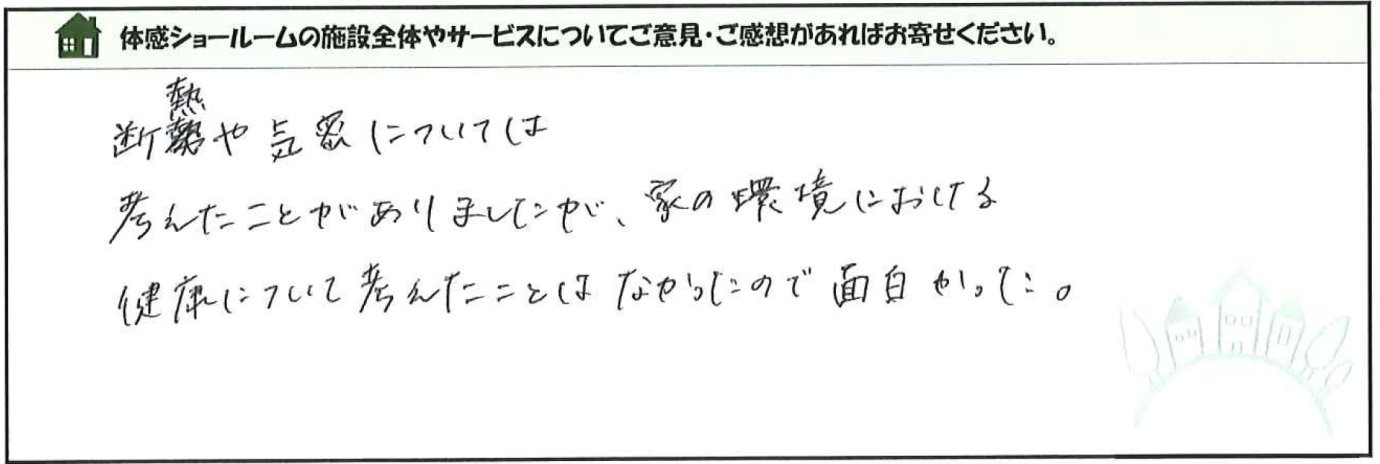 体感ショールームの施設全体やサービスについてご意見・ご感想があればお寄せください。
断熱や気密については
考えたことがありましたが、家の環境における
健康について考えたことはなかったので面白かった。